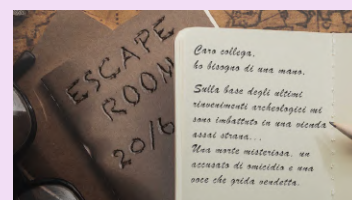 ESCAPE
ROOM
20/6
Caro collega,
ho bisogno di una mano.
Sulla base degli ultimi
rinvenimenti archeologici mi
sono imbattuto in una vicenda
assai strana...
Una morte misteriosa, un
accusato di omicidio e una
voce che grida vendetta.